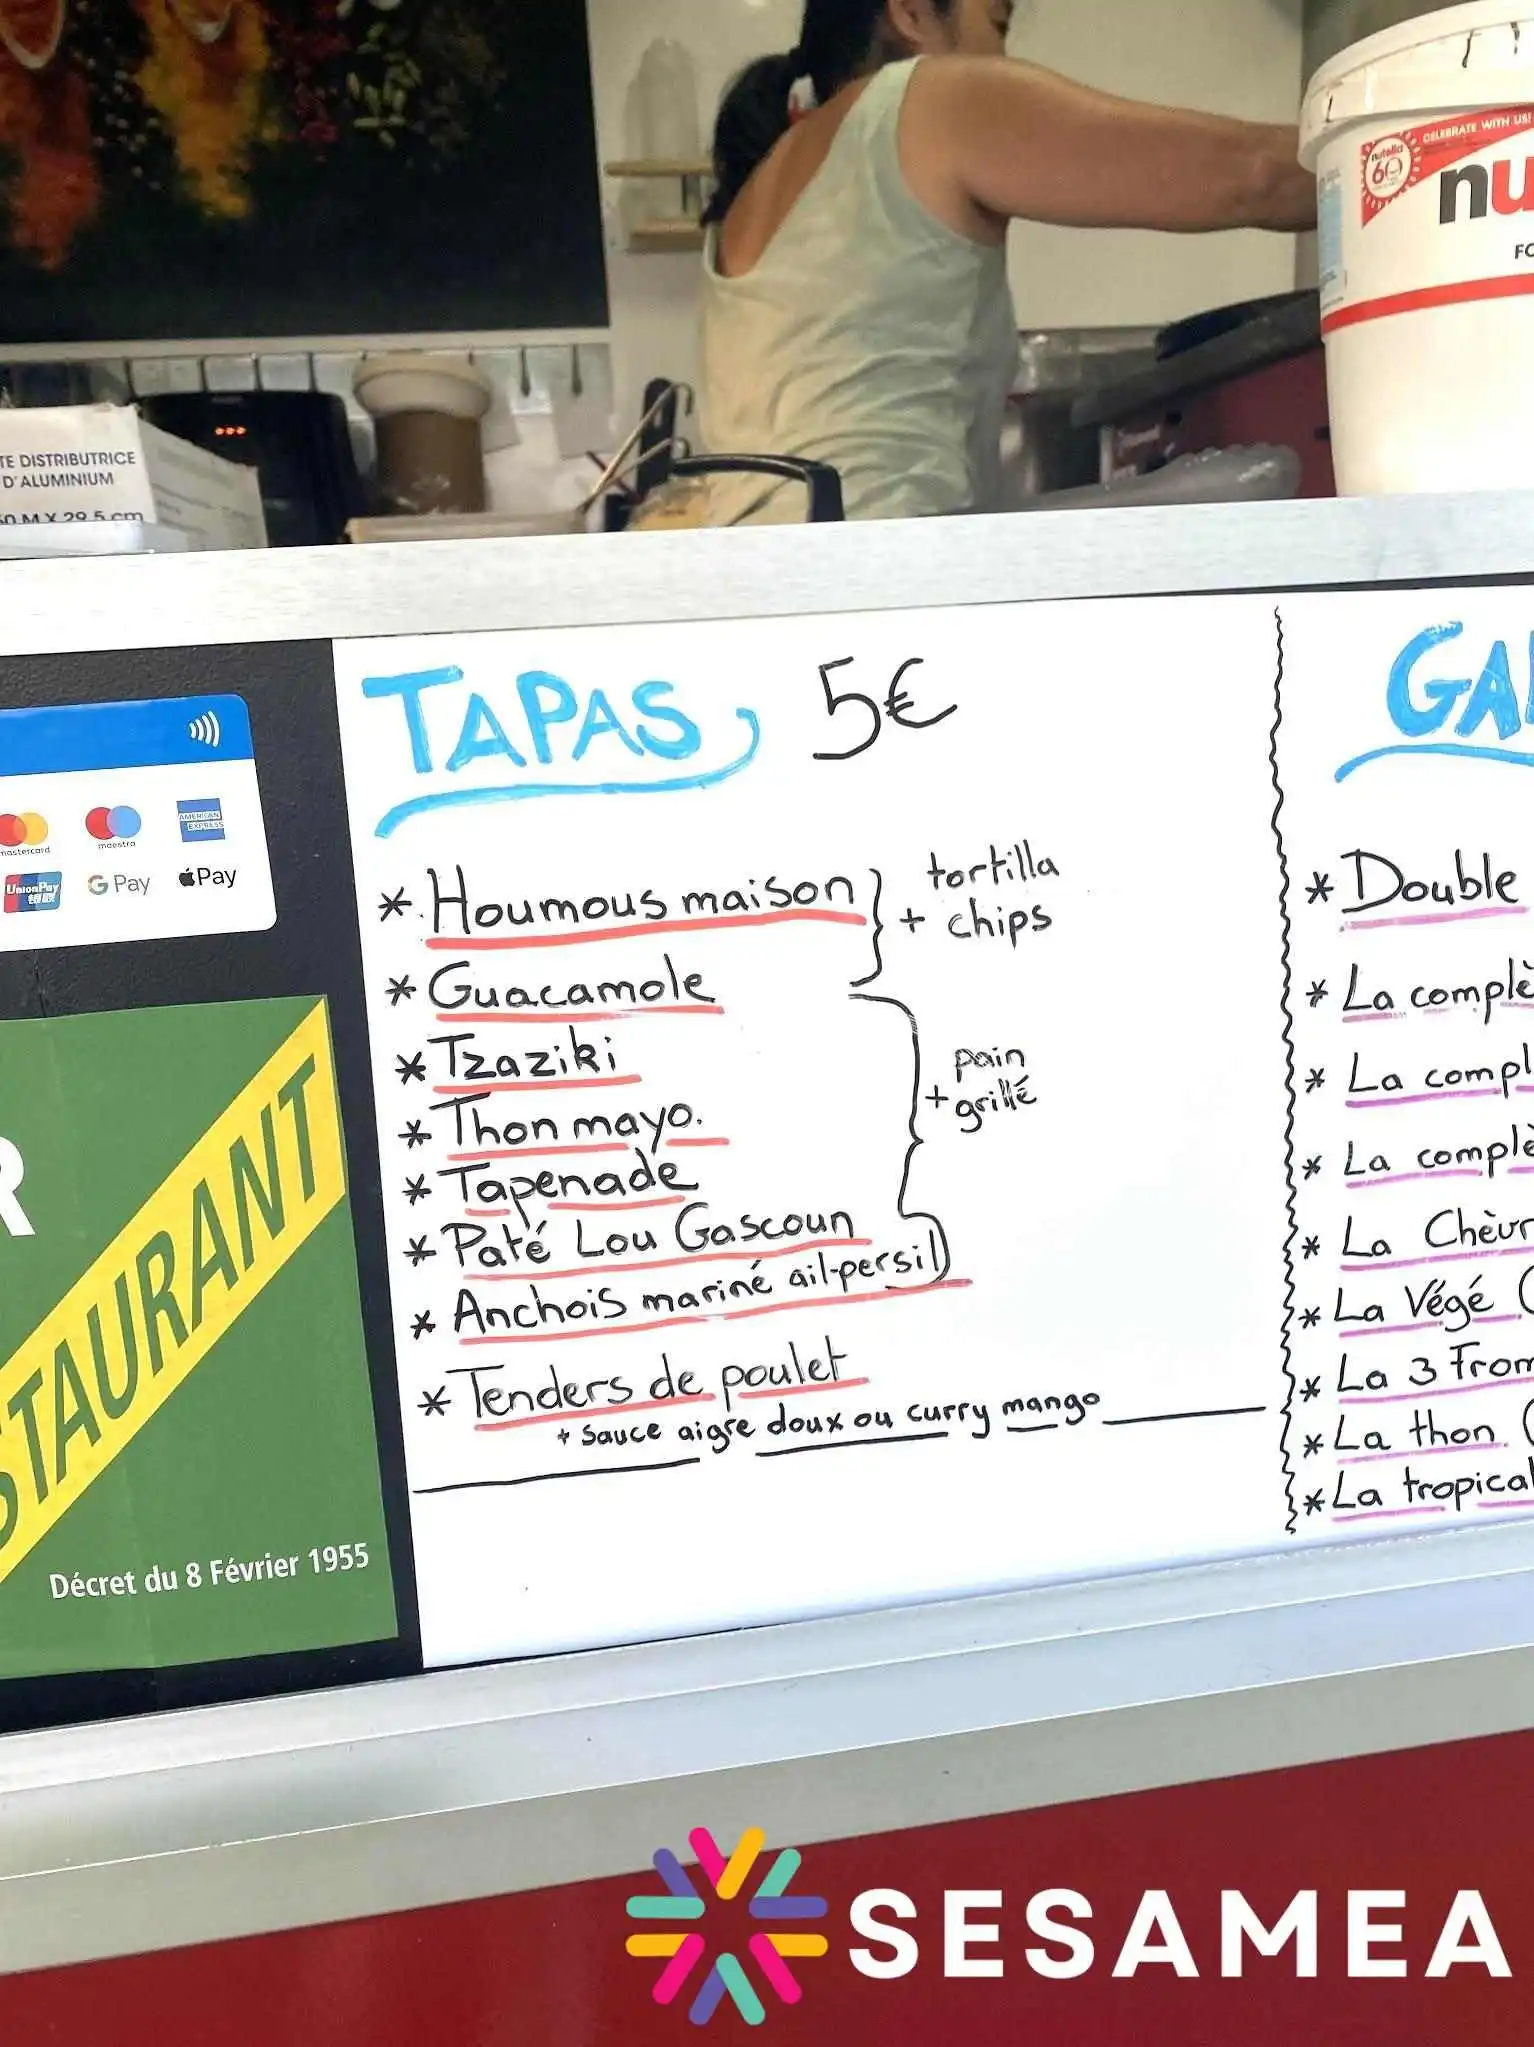 CELEBRATE WITH US!
nutella
60
nu
FO
TE DISTRIBUTRICE
D'ALUMINIUM
50 M X 29.5 cm
TAPAS 5€
* Houmous maison + tortilla chips
* Guacamole
* Tzaziki
* Thon mayo.
* Tapenade
* Paté Lou Gascoun
* Anchois mariné ail-persil
+ pain grillé
* Tenders de poulet
+ sauce aigre doux ou curry mango
GAL
* Double
* La complè
* La compl
* La complè
* La Chèvr
* La Végé (
* La 3 From
* La thon (
* La tropical
mastercard
maestro
AMERICAN EXPRESS
UnionPay
银联
G Pay
Pay
R
STAURANT
Décret du 8 Février 1955
SESAMEA